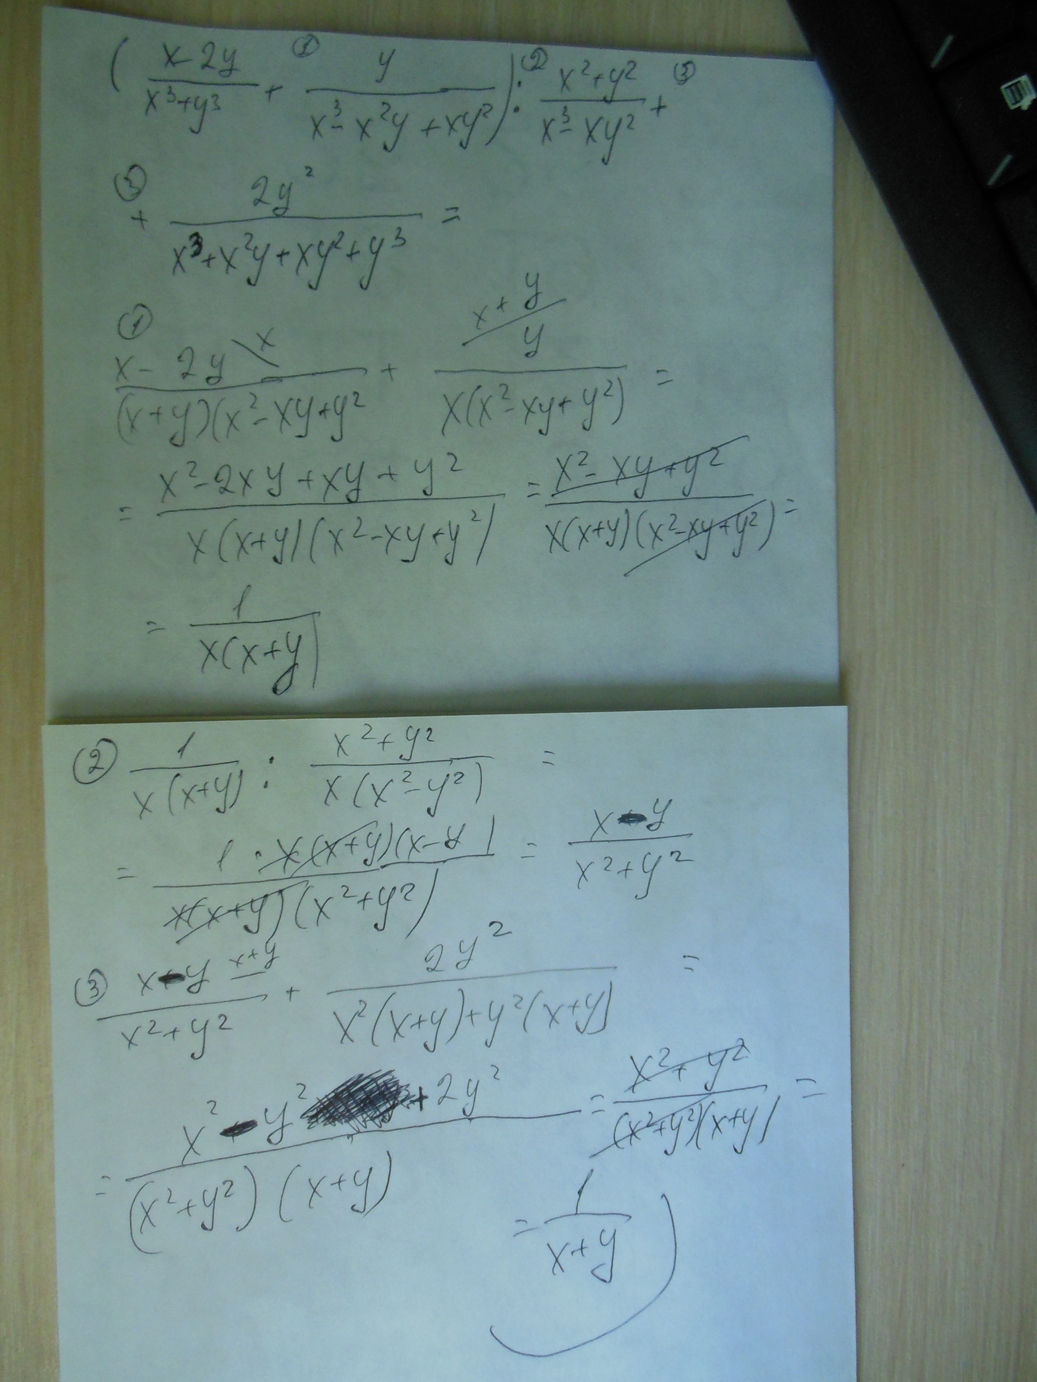 ( (x-2y)/(x³+y³) +① y/(x³-x²y+xy²) ) :② (x²+y²)/(x³-xy²) +③
③ + 2y²/(x³+x²y+xy²+y³) =
① (x-2y \x)/((x+y)(x²-xy+y²) + (x+y/ y)/(x(x²-xy+y²)) =
= (x²-2xy+xy+y²)/(x(x+y)(x²-xy+y²)) = (x²-xy+y²)/(x(x+y)(x²-xy+y²)) =
= 1/(x(x+y))
② 1/(x(x+y)) : (x²+y²)/(x(x²-y²)) =
= (1·x(x+y)(x-y))/(x(x+y)(x²+y²)) = (x-y)/(x²+y²)
③ (x-y x+y)/(x²+y²) + 2y²/(x²(x+y)+y²(x+y)) =
= (x²-y²+2y²)/((x²+y²)(x+y)) = (x²+y²)/((x²+y²)(x+y)) =
= 1/(x+y)